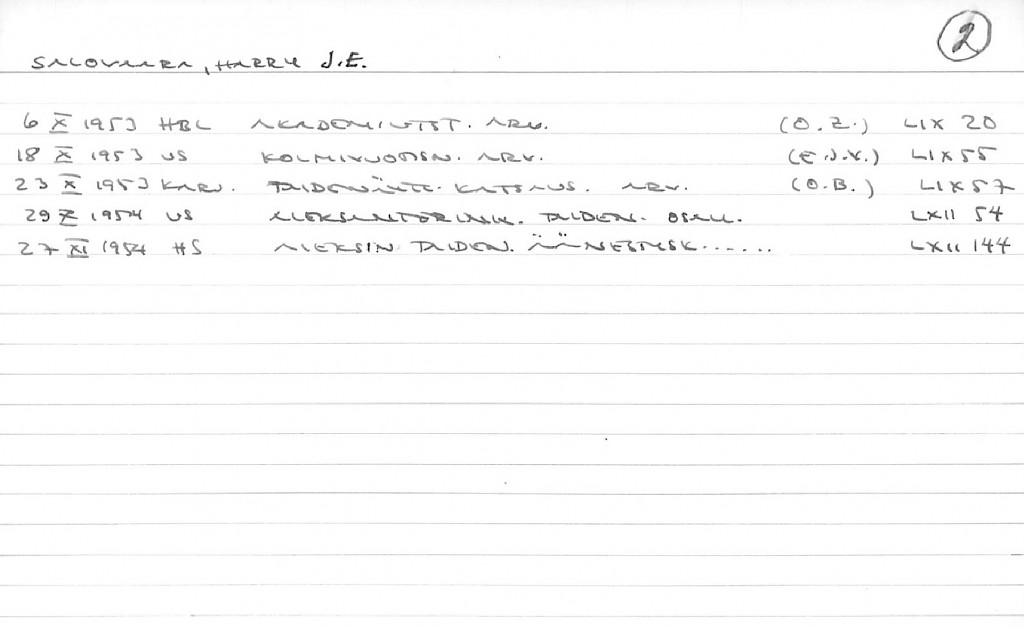 2
SALOVAARA, HARRY J.E.
6 X 1953 HBL AKADEMIUTST. ARV. (O.Z.) LIX 20
18 X 1953 US KOLMIVUOTISN. ARV. (E.J.V.) LIX 55
23 X 1953 KARJ. TAIDENÄYTT. KATSAUS. ARV. (O.B.) LIX 57
29 X 1954 US ALEKSANTERINK. TAIDEN. OSALL. LXII 54
27 XI 1954 HS ALEKSIN TAIDEN. ÄÄNESTYSK...... LXII 144